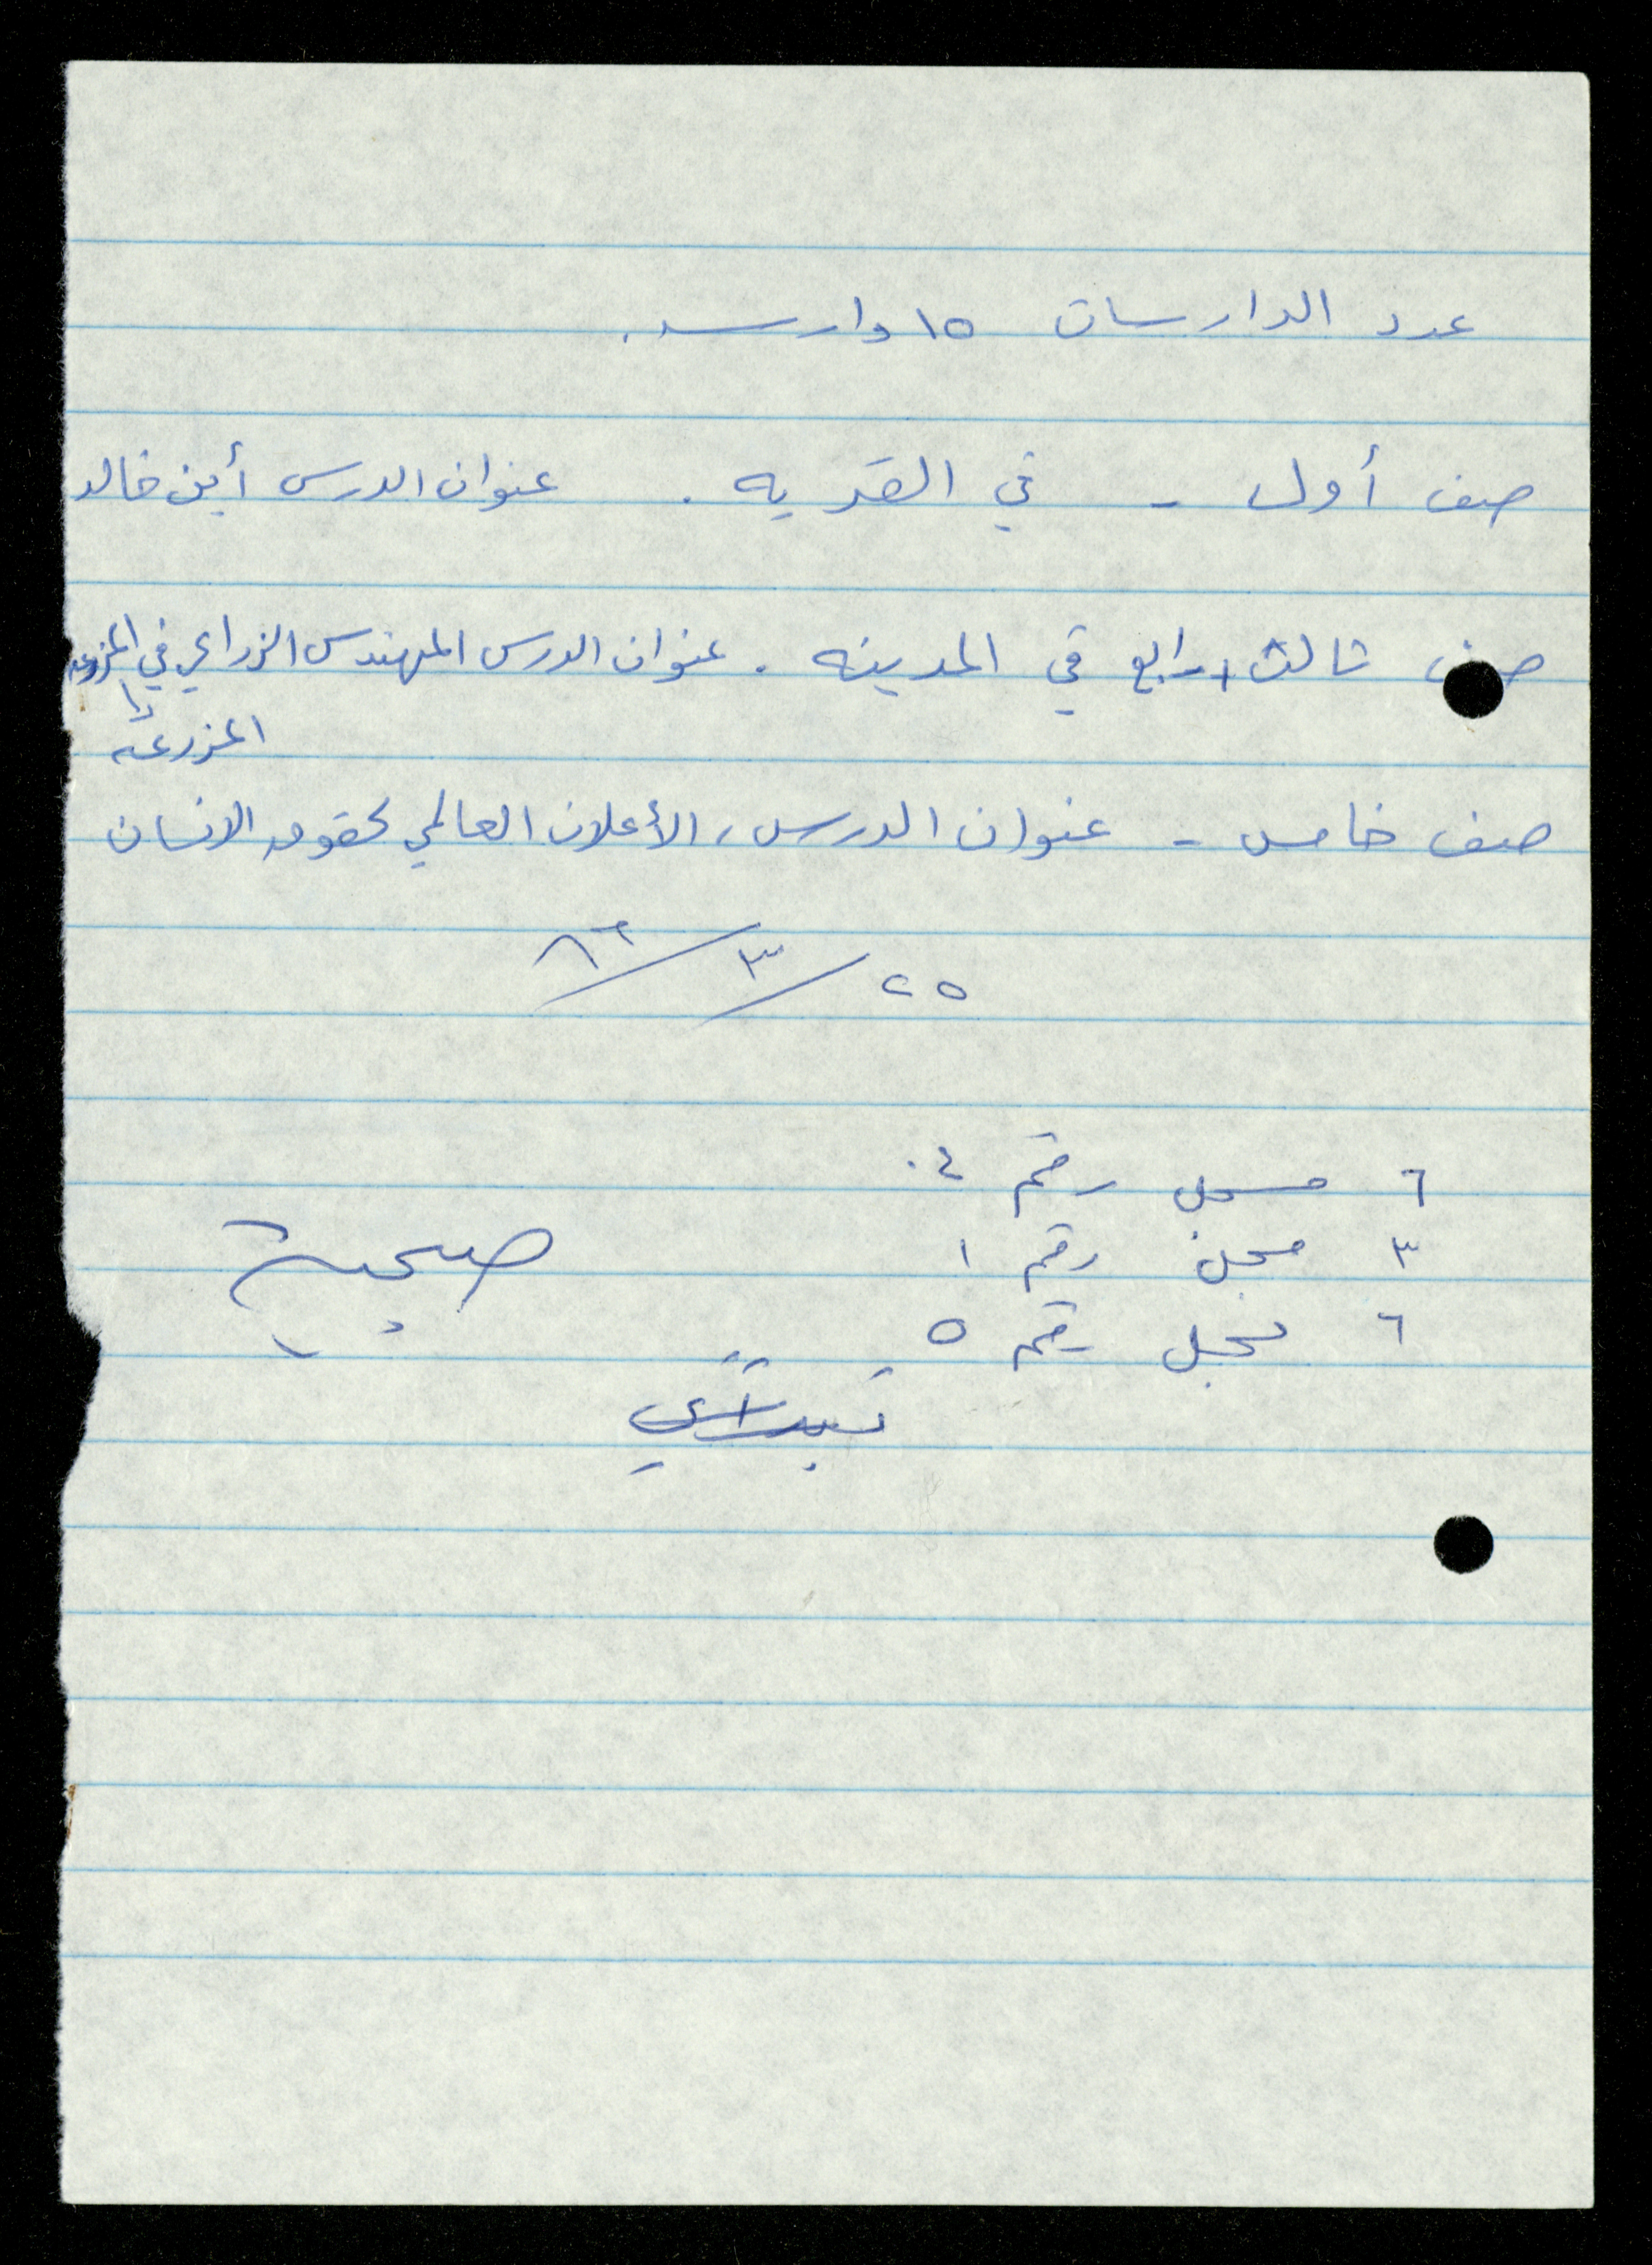 عدد الدارسات ١٥ دارسه.
صف أول - في القريه . عنوان الدرس أين خالد
صف ثالث + رابع في المدينه . عنوان الدرس المهندس الزراعي في المزرعه
المزرعه
صف خامس - عنوان الدرس، الأعلان العالمي لحقوق الانسان
٢٥/٣/٨٦
٦ مسجل رقم ٤.
٣ مسجل رقم ١
٦ مسجل رقم ٥